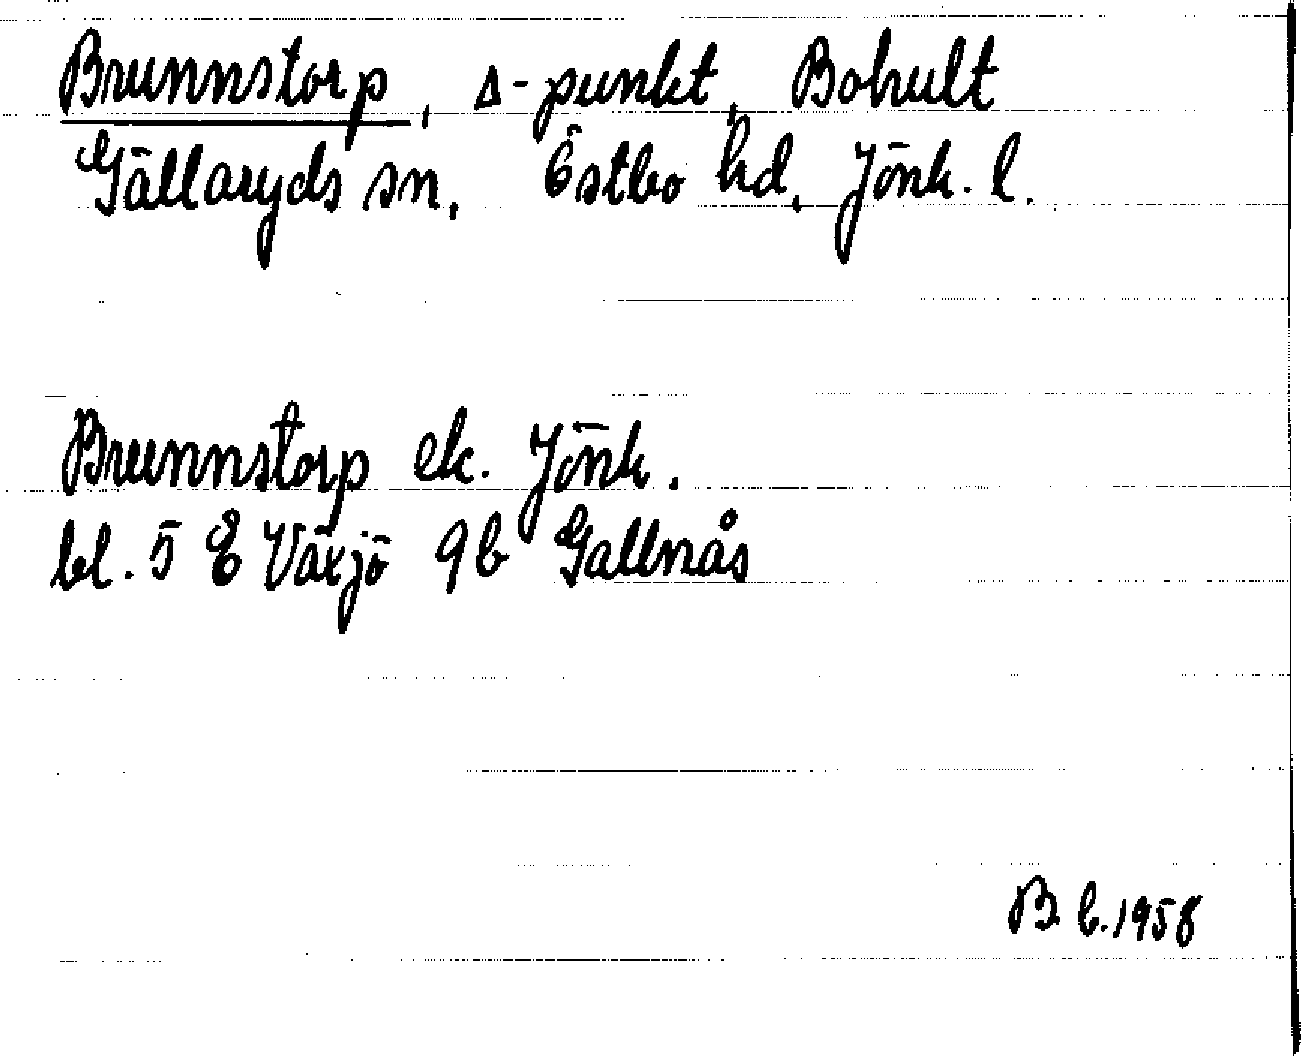 Brunnstorp, Δ-punkt, Bohult
Gällaryds sn, Östbo hd, Jönk. l.
Brunnstorp ek. Jönk.
bl. 5 E Växjö 9b Gallnås
B. b. 1958